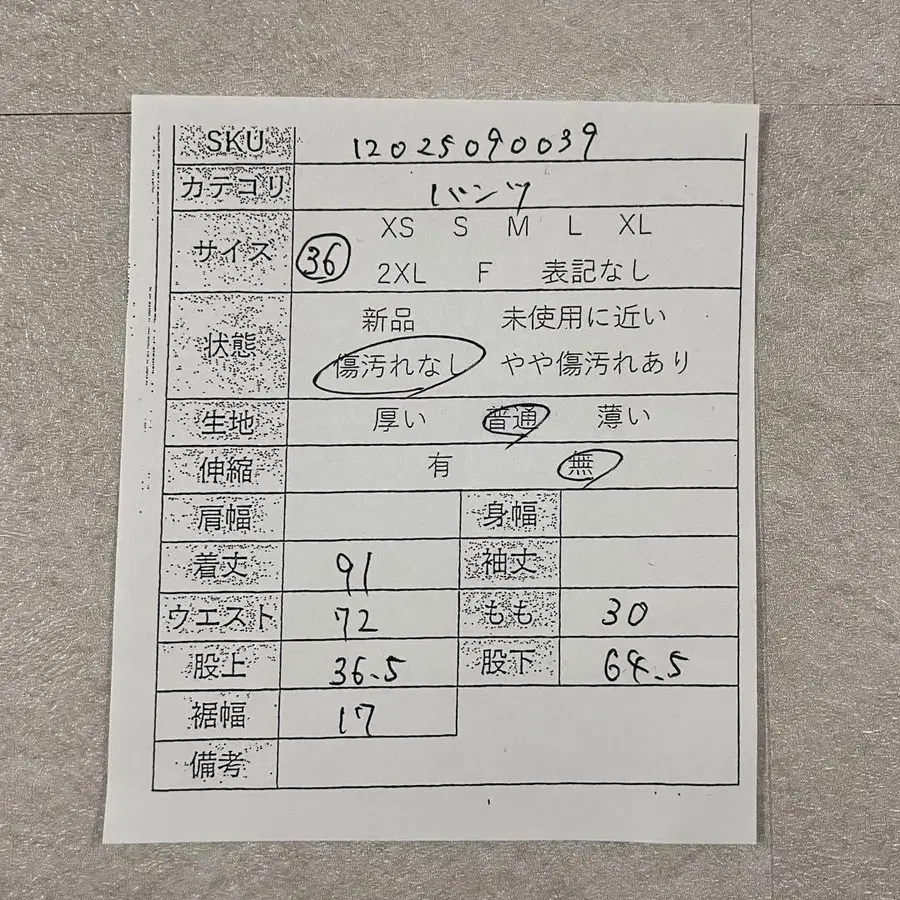 SKU 12025090039
カテゴリ パンツ
サイズ 36 XS S M L XL
2XL F 表記なし
状態 新品 未使用に近い
傷汚れなし やや傷汚れあり
生地 厚い 普通 薄い
伸縮 有 無
肩幅 身幅
着丈 91 袖丈
ウエスト 72 もも 30
股上 36.5 股下 64.5
裾幅 17
備考